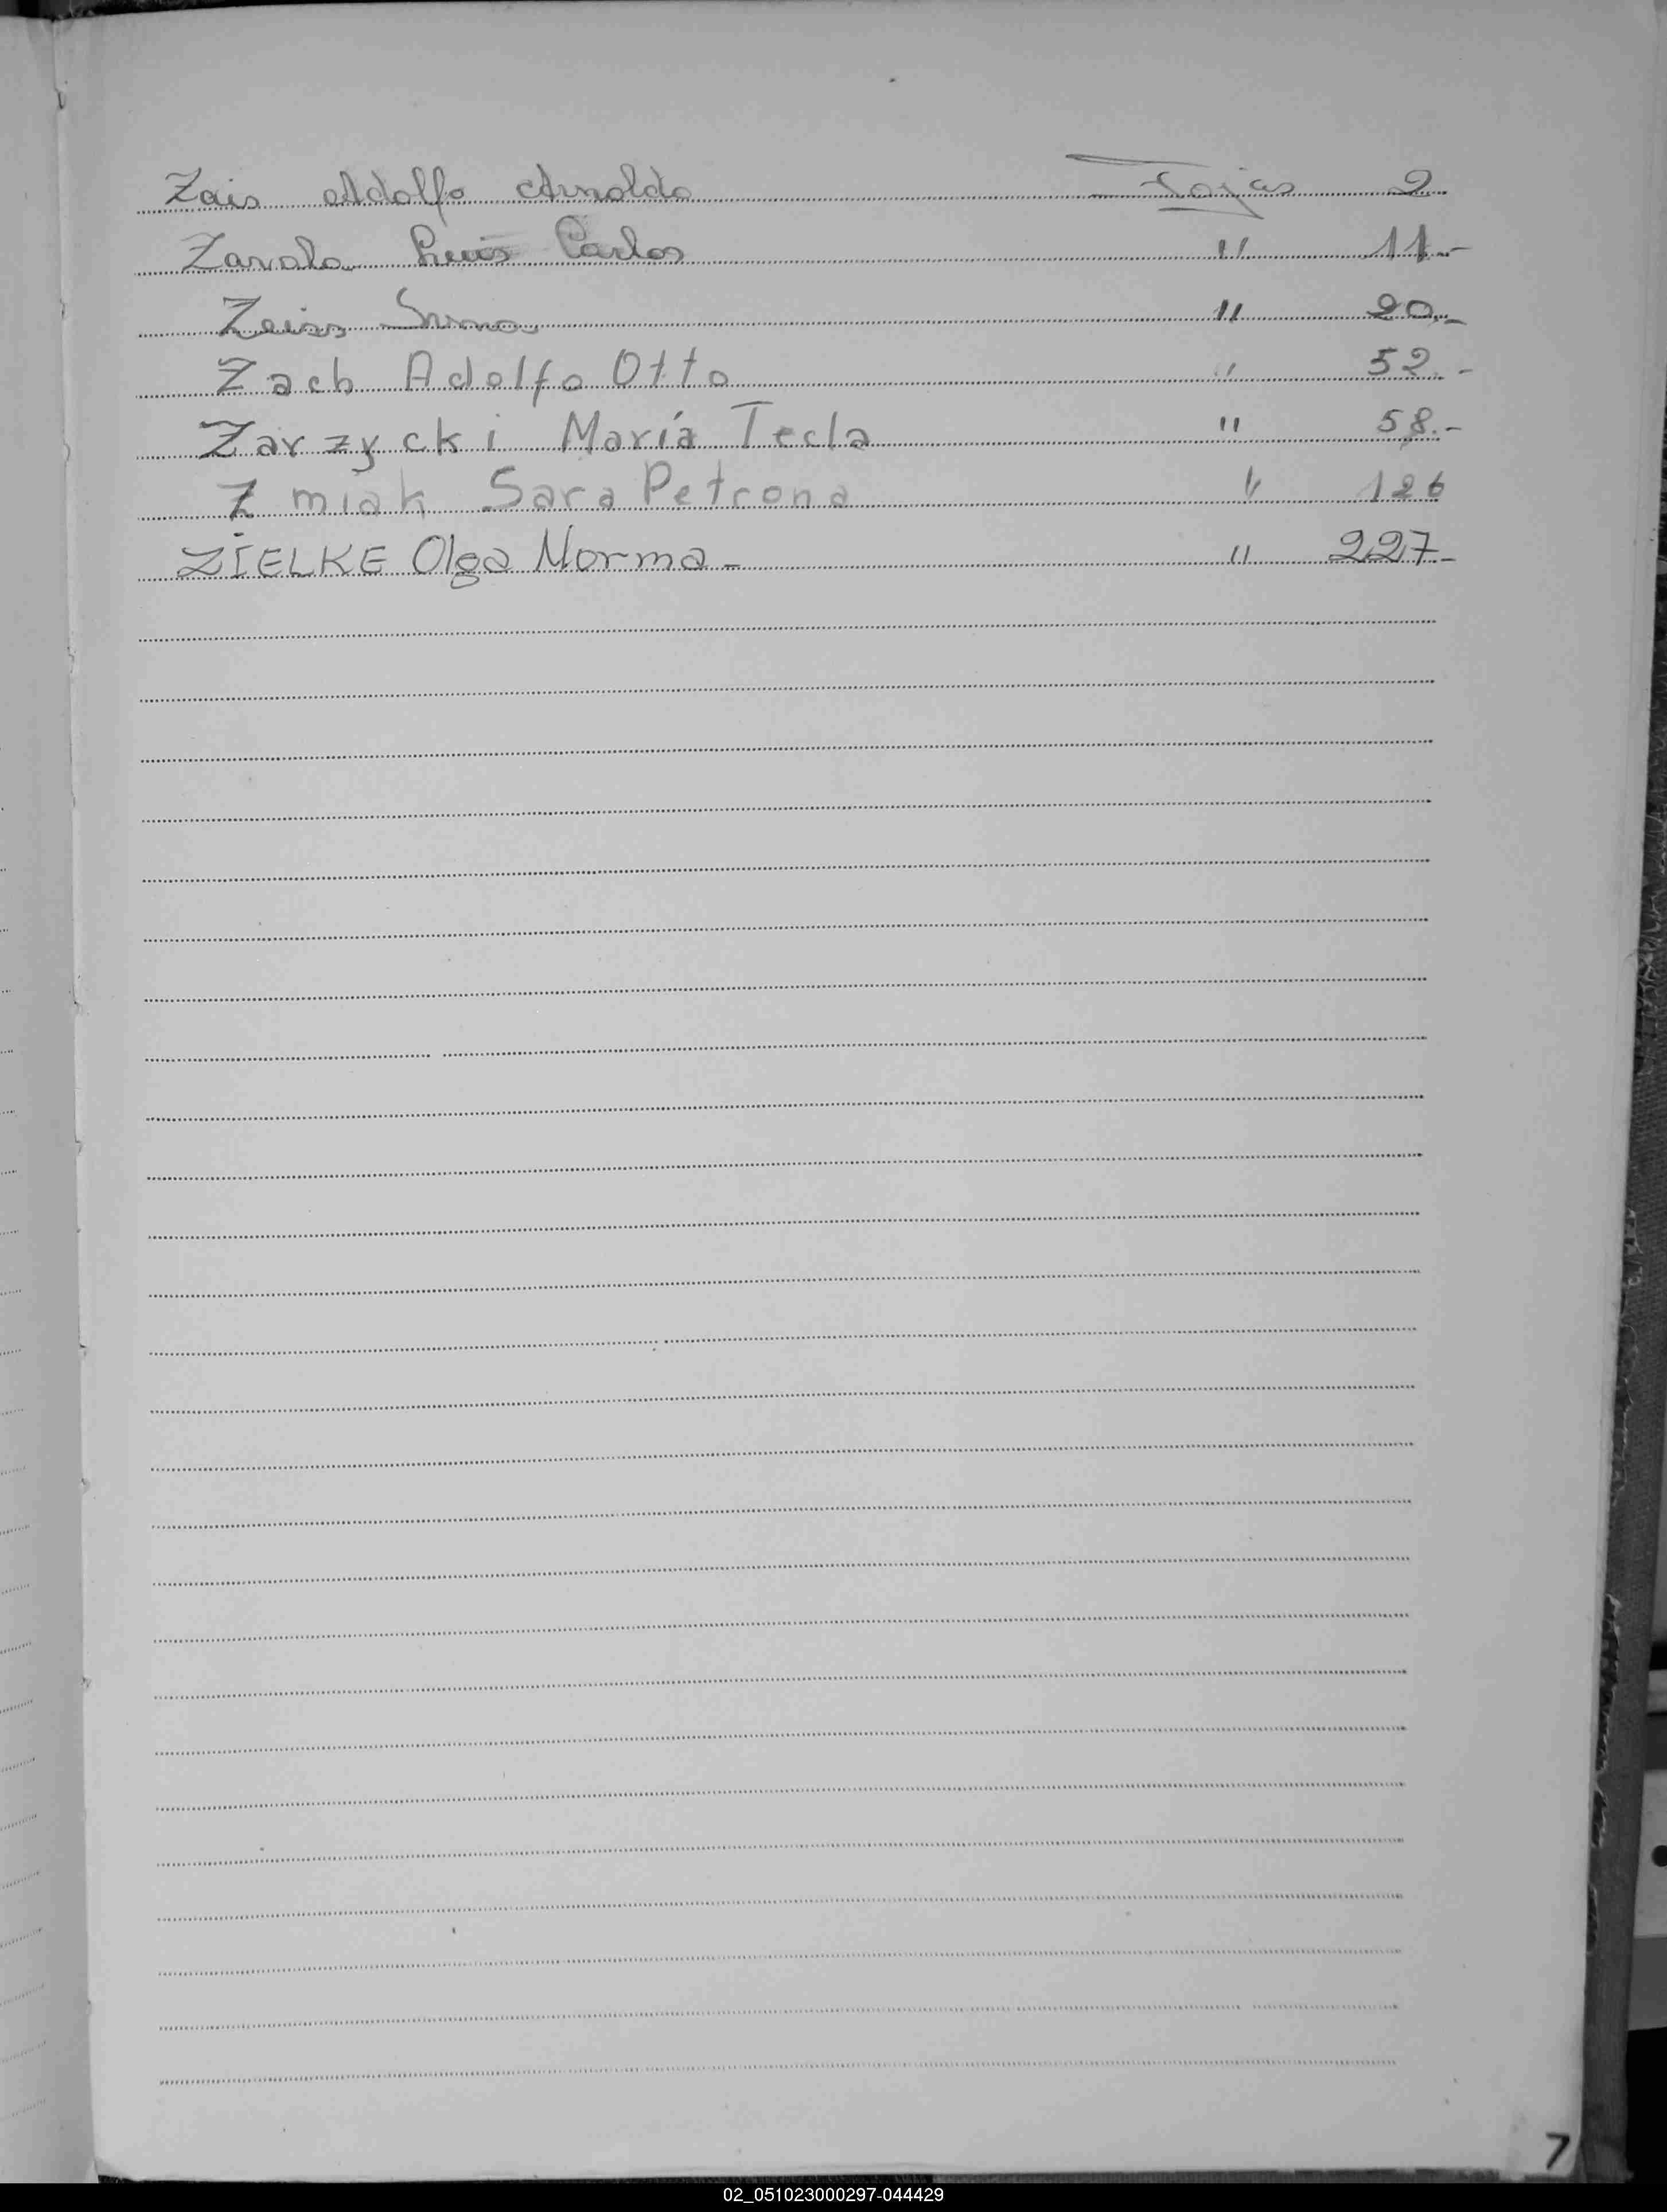 Zais Adolfo Arnoldo Fojas 2
Zavala Luis Carlos " 11.-
Zeiss Irma " 20.-
Zach Adolfo Otto " 52.-
Zarzycki María Tecla " 58.-
Zmiak Sara Petrona " 126
ZIELKE Olga Norma - " 227.-
7
02_051023000297-044429